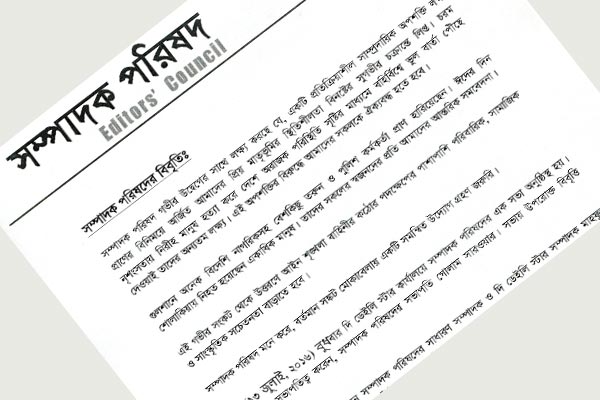 সম্পাদক পরিষদ
Editors' Council
সম্পাদক পরিষদের বিবৃতিঃ
সম্পাদক পরিষদ গভীর উদ্বেগের সাথে লক্ষ্য করছে যে, একটি প্রতিক্রিয়াশীল সাম্প্রদায়িক অপশক্তি
প্রাণের বিনিময়ে অর্জিত আমাদের প্রিয় মাতৃভূমির স্থিতিশীলতা বিনষ্টের সুগভীর চক্রান্তে লিপ্ত। চরম
নৃশংসতায় নিরীহ মানুষ হত্যা করে দেশে অরাজক পরিস্থিতি সৃষ্টির মাধ্যমে বহির্বিশ্বে ভুল বার্তা পৌঁছে
দেওয়াই তাদের অন্যতম লক্ষ্য। এই অপশক্তির বিরুদ্ধে আমাদের সকলকে ঐক্যবদ্ধ হতে হবে।
গুলশানে অনেক বিদেশি নাগরিকসহ বেশকিছু তরুন ও পুলিশ কর্মকর্তা প্রাণ হারিয়েছেন। ঈদের দিন
শোলাকিয়ায় নিহত হয়েছেন একাধিক মানুষ। তাদের সকলের স্বজনদের প্রতি আমাদের আন্তরিক সমবেদনা।
এই গভীর সংকট থেকে উত্তরণে আইন শৃঙ্খলা বাহিনীর কঠোর পদক্ষেপের পাশাপাশি পারিবারিক, সামাজিক
ও সাংস্কৃতিক সচেতনতা বাড়াতে হবে।
সম্পাদক পরিষদ মনে করে, বর্তমান সঙ্কট মোকাবেলায় একটি সমন্বিত উদ্যোগ গ্রহণ জরুরি।
জুলাই, ২০১৬) বুধবার দি ডেইলি স্টার কার্যালয়ে সম্পাদক পরিষদের এক সভা অনুষ্ঠিত হয়।
সভাপতিত্ব করেন, সম্পাদক পরিষদের সভাপতি গোলাম সারওয়ার। সভায় উপরোক্ত বিবৃতি
সম্পাদক পরিষদের সাধারণ সম্পাদক ও দি ডেইলি স্টার সম্পাদক